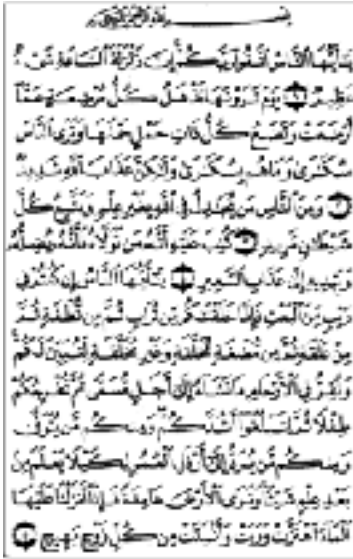 بسم الله الرحمن الرحيم
يَا أَيُّهَا النَّاسُ اتَّقُوا رَبَّكُمْ إِنَّ زَلْزَلَةَ السَّاعَةِ شَيْءٌ
عَظِيمٌ ۝ يَوْمَ تَرَوْنَهَا تَذْهَلُ كُلُّ مُرْضِعَةٍ عَمَّا
أَرْضَعَتْ وَتَضَعُ كُلُّ ذَاتِ حَمْلٍ حَمْلَهَا وَتَرَى النَّاسَ
سُكَارَى وَمَا هُم بِسُكَارَى وَلَٰكِنَّ عَذَابَ اللَّهِ شَدِيدٌ
۝ وَمِنَ النَّاسِ مَن يُجَادِلُ فِي اللَّهِ بِغَيْرِ عِلْمٍ وَيَتَّبِعُ كُلَّ
شَيْطَانٍ مَّرِيدٍ ۝ كُتِبَ عَلَيْهِ أَنَّهُ مَن تَوَلَّاهُ فَأَنَّهُ يُضِلُّهُ
وَيَهْدِيهِ إِلَى عَذَابِ السَّعِيرِ ۝ يَا أَيُّهَا النَّاسُ إِن كُنتُمْ فِي
رَيْبٍ مِّنَ الْبَعْثِ فَإِنَّا خَلَقْنَاكُم مِّن تُرَابٍ ثُمَّ مِن نُّطْفَةٍ ثُمَّ
مِنْ عَلَقَةٍ ثُمَّ مِن مُّضْغَةٍ مُّخَلَّقَةٍ وَغَيْرِ مُخَلَّقَةٍ لِّنُبَيِّنَ لَكُمْ
وَنُقِرُّ فِي الْأَرْحَامِ مَا نَشَاءُ إِلَى أَجَلٍ مُّسَمًّى ثُمَّ نُخْرِجُكُمْ
طِفْلًا ثُمَّ لِتَبْلُغُوا أَشُدَّكُمْ وَمِنكُم مَّن يُتَوَفَّى
وَمِنكُم مَّن يُرَدُّ إِلَى أَرْذَلِ الْعُمُرِ لِكَيْلَا يَعْلَمَ مِن
بَعْدِ عِلْمٍ شَيْئًا وَتَرَى الْأَرْضَ هَامِدَةً فَإِذَا أَنزَلْنَا عَلَيْهَا
الْمَاءَ اهْتَزَّتْ وَرَبَتْ وَأَنبَتَتْ مِن كُلِّ زَوْجٍ بَهِيجٍ ۝